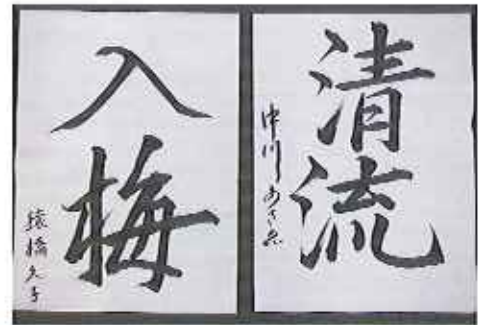 清流
中川あさ
入梅
猿橋久子